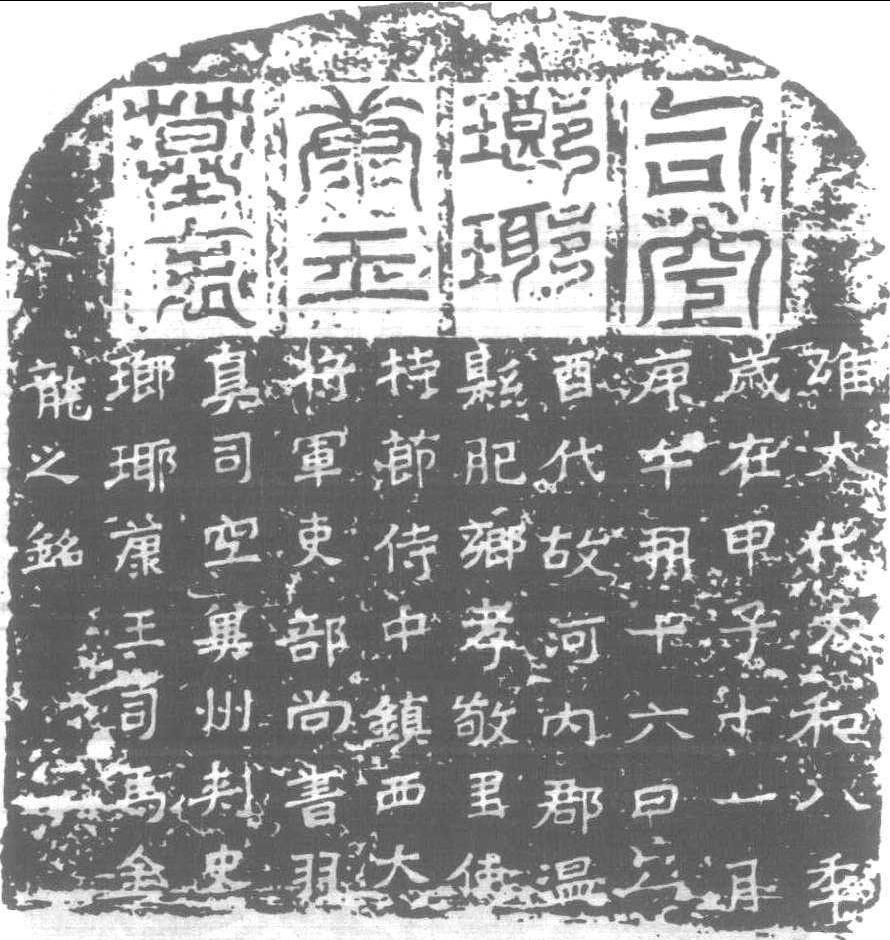 司空
琅琊
康王
墓表
維大代太和八年
歲在甲子十一月
庚午朔十六日乙
酉代故河内郡温
縣肥鄉孝敬里使
持節侍中鎮西大
將軍吏部尚書羽
真司空冀州刺史
琅琊康王司馬金
龍之銘